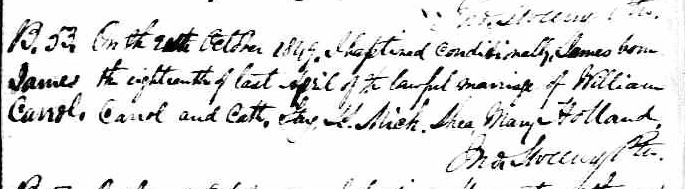 B. 53. On the 20th October 1849, I baptized conditionally, James born
James the eighteenth of last April of the lawful marriage of William
Carrol. Carrol and Cath. Mich. Shea, Mary Holland.
Jno Sweeny Ptr.